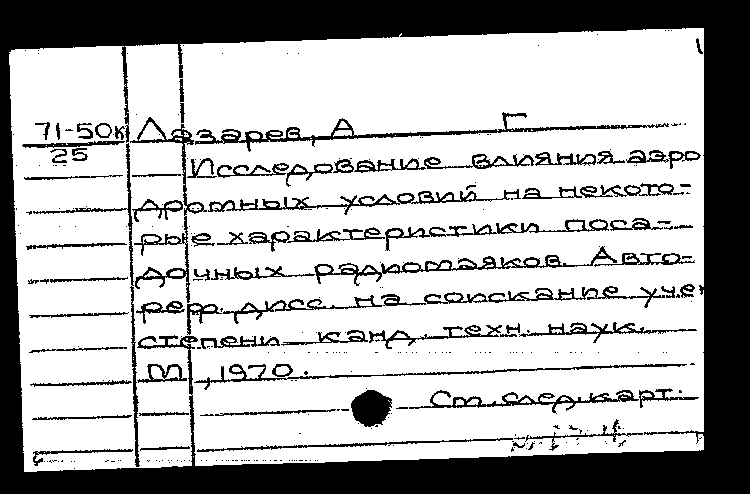 71-50к Лазарев, А Г
25
Исследование влияния аэро
дромных условий на некото-
рые характеристики поса-
дочных радиомаяков. Авто-
реф. дисс. на соискание учен
степени канд. техн. наук.
М, 1970.
См. след. карт.